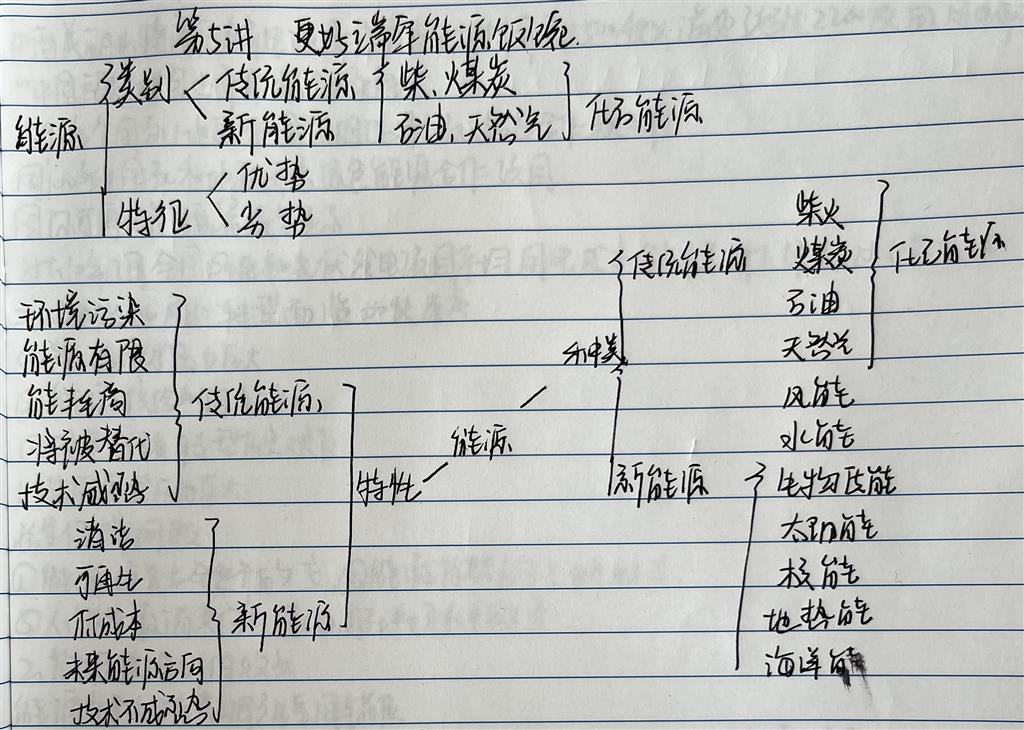 第5讲 更好端牢能源饭碗
能源
类别
传统能源
柴、煤炭
新能源
石油、天然气
化石能源
特征
优势
劣势
能源
种类
传统能源
柴火
煤炭
石油
天然气
化石能源
新能源
风能
水能
生物质能
太阳能
核能
地热能
海洋能
特性
传统能源
环境污染
能源有限
能耗高
将被替代
技术成熟
新能源
清洁
可再生
成本
未来能源方向
技术不成熟